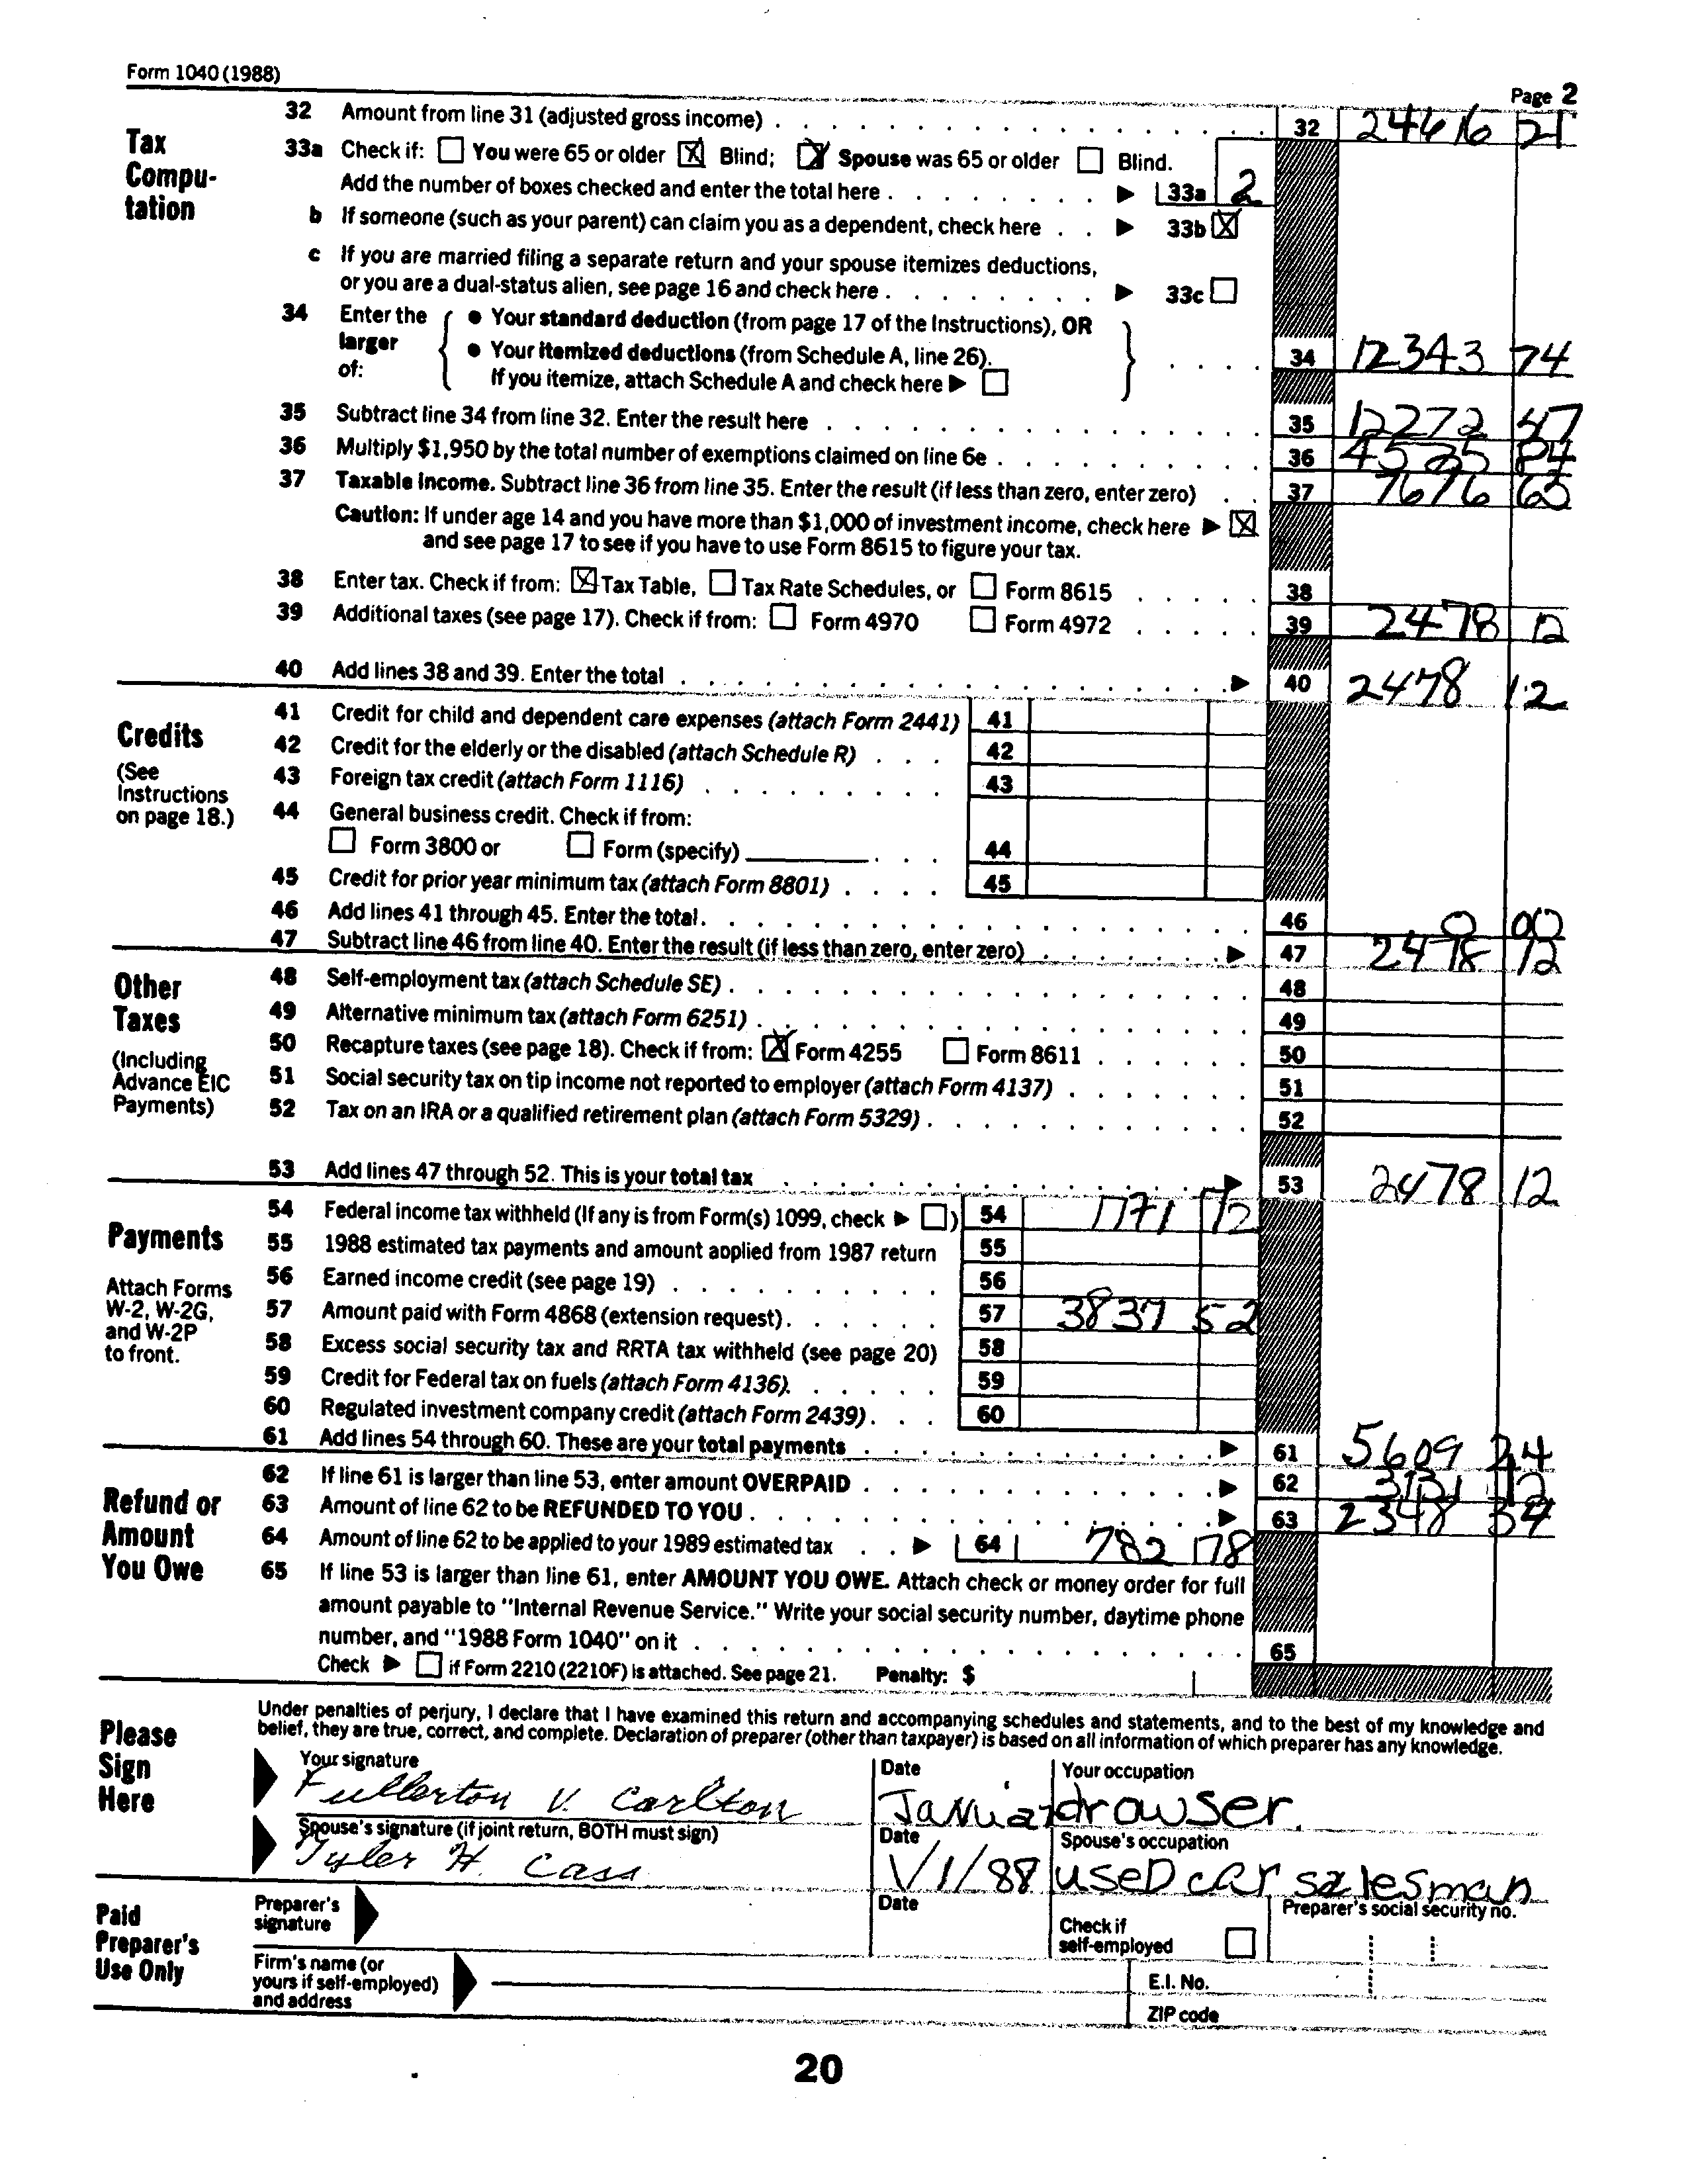 Form 1040 (1988)
Page 2
Tax Computation
32 Amount from line 31 (adjusted gross income) . . . 32 24616 21
33a Check if: You were 65 or older Blind; Spouse was 65 or older Blind.
Add the number of boxes checked and enter the total here . . . 33a 2
b If someone (such as your parent) can claim you as a dependent, check here . . 33b
c If you are married filing a separate return and your spouse itemizes deductions,
or you are a dual-status alien, see page 16 and check here . . . 33c
34 Enter the larger of:
• Your standard deduction (from page 17 of the Instructions), OR
• Your itemized deductions (from Schedule A, line 26).
If you itemize, attach Schedule A and check here
34 12343 74
35 Subtract line 34 from line 32. Enter the result here . . . 35 12272 47
36 Multiply $1,950 by the total number of exemptions claimed on line 6e . . . 36 84
37 Taxable income. Subtract line 36 from line 35. Enter the result (if less than zero, enter zero) . . 37 7676 63
Caution: If under age 14 and you have more than $1,000 of investment income, check here
and see page 17 to see if you have to use Form 8615 to figure your tax.
38 Enter tax. Check if from: Tax Table, Tax Rate Schedules, or Form 8615 . . . 38
39 Additional taxes (see page 17). Check if from: Form 4970 Form 4972 . . . 39 2478 12
40 Add lines 38 and 39. Enter the total . . . 40 2478 12
Credits
(See Instructions on page 18.)
41 Credit for child and dependent care expenses (attach Form 2441) 41
42 Credit for the elderly or the disabled (attach Schedule R) . . . 42
43 Foreign tax credit (attach Form 1116) . . . 43
44 General business credit. Check if from:
Form 3800 or Form (specify) . . . 44
45 Credit for prior year minimum tax (attach Form 8801) . . . 45
46 Add lines 41 through 45. Enter the total . . . 46 0 00
47 Subtract line 46 from line 40. Enter the result (if less than zero, enter zero) . . . 47 2478 12
Other Taxes
(Including Advance EIC Payments)
48 Self-employment tax (attach Schedule SE) . . . 48
49 Alternative minimum tax (attach Form 6251) . . . 49
50 Recapture taxes (see page 18). Check if from: Form 4255 Form 8611 . . . 50
51 Social security tax on tip income not reported to employer (attach Form 4137) . . . 51
52 Tax on an IRA or a qualified retirement plan (attach Form 5329) . . . 52
53 Add lines 47 through 52. This is your total tax . . . 53 2478 12
Payments
Attach Forms W-2, W-2G, and W-2P to front.
54 Federal income tax withheld (If any is from Form(s) 1099, check ) 54 1771 72
55 1988 estimated tax payments and amount applied from 1987 return 55
56 Earned income credit (see page 19) . . . 56
57 Amount paid with Form 4868 (extension request) . . . 57 3837 52
58 Excess social security tax and RRTA tax withheld (see page 20) 58
59 Credit for Federal tax on fuels (attach Form 4136) . . . 59
60 Regulated investment company credit (attach Form 2439) . . . 60
61 Add lines 54 through 60. These are your total payments . . . 61 5609 24
Refund or Amount You Owe
62 If line 61 is larger than line 53, enter amount OVERPAID . . . 62 3131 12
63 Amount of line 62 to be REFUNDED TO YOU . . . 63 2348 34
64 Amount of line 62 to be applied to your 1989 estimated tax . . 64 782 78
65 If line 53 is larger than line 61, enter AMOUNT YOU OWE. Attach check or money order for full
amount payable to "Internal Revenue Service." Write your social security number, daytime phone
number, and "1988 Form 1040" on it . . . 65
Check if Form 2210 (2210F) is attached. See page 21. Penalty: $
Please Sign Here
Under penalties of perjury, I declare that I have examined this return and accompanying schedules and statements, and to the best of my knowledge and
belief, they are true, correct, and complete. Declaration of preparer (other than taxpayer) is based on all information of which preparer has any knowledge.
Your signature Date Your occupation
Fullerton V. Carlton drowser
Spouse's signature (if joint return, BOTH must sign) Date Spouse's occupation
Tyler H. Cass 1/1/88 useD car salesman
Paid Preparer's Use Only
Preparer's signature Date Check if self-employed Preparer's social security no.
Firm's name (or yours if self-employed) and address E.I. No.
ZIP code
20